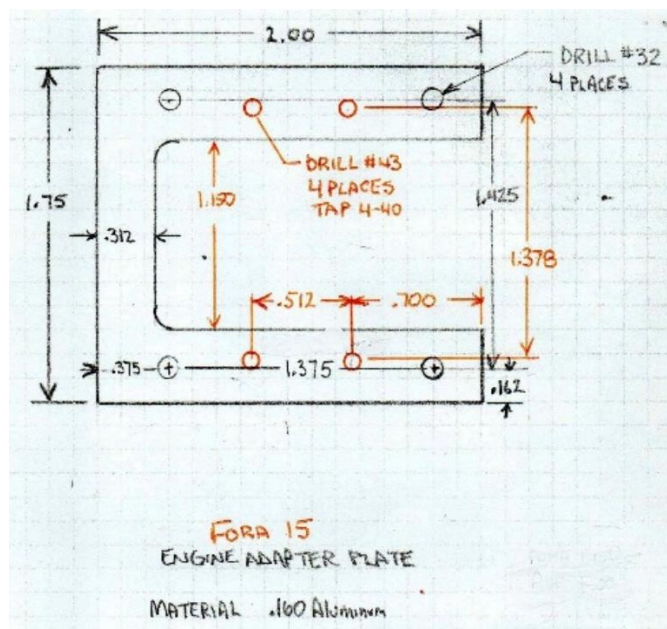 2.00
DRILL #32
4 PLACES
DRILL #43
4 PLACES
TAP 4-40
1.75
.312
1.425
1.378
.512
.700
.375
1.375
.162
FORA 15
ENGINE ADAPTER PLATE
MATERIAL .160 Aluminum